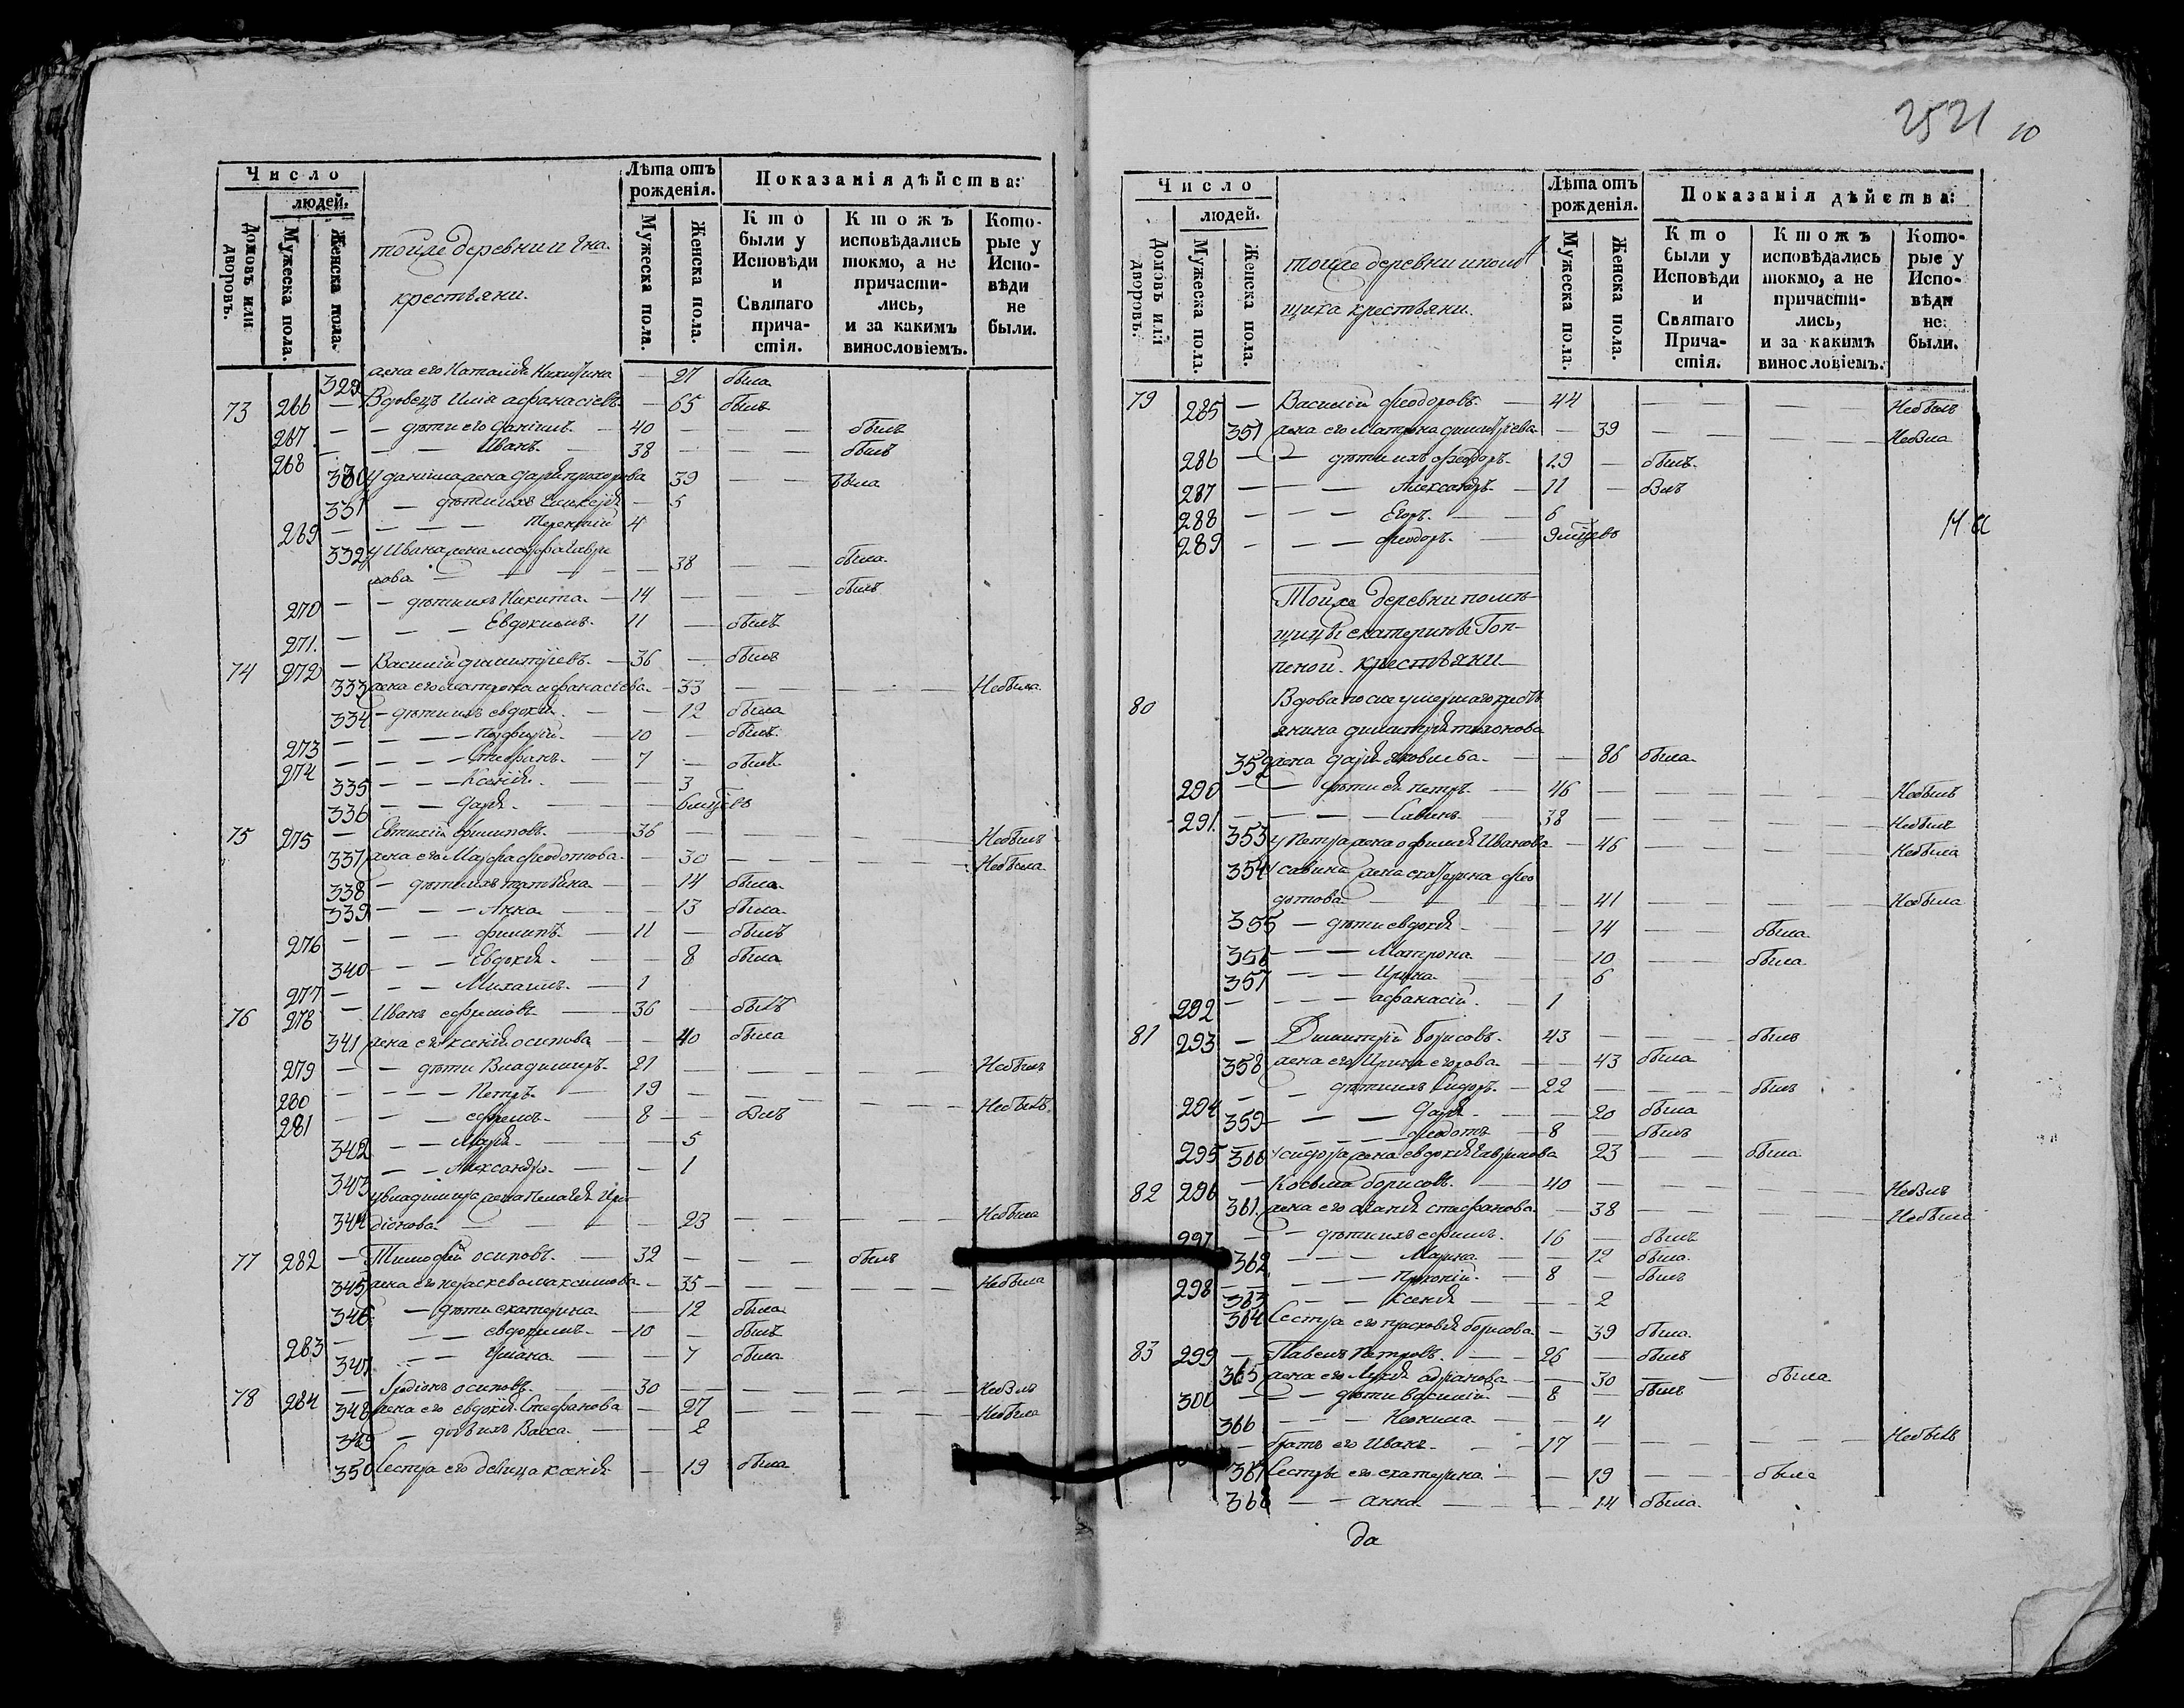 Число
людей.
Домовъ или дворовъ.
Мужеска пола.
Женска пола.
тойже деревни и
крестьяни.
Лѣта отъ рожденія.
Мужеска пола.
Женска пола.
Показанія дѣйства:
Кто были у Исповѣди и Святаго причастія.
Ктожъ исповѣдались токмо, а не причастились, и за какимъ винословіемъ.
Которые у Исповѣди не были.
329 жена его Наталія Никитина — 27 была
73 266 — Вдовецъ Илія афанасіевъ — 65 былъ
267 — — дѣти его даніилъ — 40 — — — былъ
268 — — — Иванъ — 38 — — — былъ
330 У даніила жена дарія прохорова 39 — — была
331 — дѣти ихъ — 5
269 — — — — Терентій 4
332 У Ивана жена марфа Гаври
лова — — — — 38 — — была
270 — — дѣти ихъ Никита — 14 — — — былъ
271. — — — Евдокимъ — 11 — былъ
74 272 — Василій димитріевъ — 36 — былъ
333 жена его матрона афанасіева — 33 — — — — Небыла
334 — дѣти ихъ евдокія — — 12 была
273 — — — — порфирій — 10 — былъ
274 — — — — Стефанъ — 7 — былъ
335 — — — Ксенія — — 3
336 — — дарія — — — 6 мцевъ
75 275 — Евтихій филиповъ — 36 — — — — — Небылъ
337 жена его Марфа феодотова — 30 — — — — — Небыла
338 — дѣти ихъ татіяна — — 14 была
339 — — — Анна — — 13 была
276 — — — филипъ — 11 — былъ
340 — — — Евдокія — — 8 была
277 — — — Михаилъ — 1
76 278 — Иванъ ефимовъ — 36 — былъ
341 жена его ксенія осипова — — 40 была
279 — — дѣти Владимиръ — 21 — — — — — Небылъ
280 — — — — Петръ — 19 — — — — — Небылъ
281 — — — ефремъ — 8 — — былъ
342 — — Марія — — — 5
343 — — Александра — — — 1
у владимира жена пелагея Іри
344 діонова — — — — 23 — — — — — Небыла
77 282 — Тимофей осиповъ — 32 — — — былъ
345 жена его параскева максимова — 35 — — — — — Небыла
346 — дѣти екатерина — 12 была
283 — — — евдокимъ — 10 — былъ
347 — — уліана — — 7 была
78 284 — Іродіонъ осиповъ — 30 — — — — — Небылъ
348 жена его евдокія Стефанова — 27 — — — — — Небыла
349 — дочь ихъ Васса — — 2
350 Сестра его девица ксенія — 19 была
2521 10
Число
людей.
Домовъ или дворовъ.
Мужеска пола.
Женска пола.
тойже деревни и помѣ
щика крестьяни.
Лѣта отъ рожденія.
Мужеска пола.
Женска пола.
Показанія дѣйства:
Кто были у Исповѣди и Святаго Причастія.
Ктожъ исповѣдались токмо, а не причастились, и за какимъ винословіемъ.
Которые у Исповѣди не были.
79 285 — Василій феодоровъ — 44 — — — — Небылъ
351 жена его Матрона димитріева — 39 — — — — Небыла
286 — — дѣти ихъ феодоръ — 19 — былъ
287 — — — Александръ — 11 — былъ
288 — — — Егоръ — — 6
289 — — — феодоръ — 9 мцевъ
Тойже деревни помѣ
щицы екатерины Гоп
пеной крестьяни
80 Вдова после умершаго крестъ
янина димитрія
352 жена дарія яковлева — — 86 была
290 — — дѣти ея петръ — 46 — — — — Небылъ
291. — — — Савинъ — 38 — — — — Небылъ
353 у Петра жена офимія Иванова — 46 — — — — Небыла
354 У савина жена екатерина фео
дотова — — — — — 41 — — — — Небыла
355 — дѣти евдокія — — 14 — — была
356 — — — Матрона — — 10 — — была
357 — — — Ирина — — 6
292 — — — — афанасій — 1
81 293 — Димитрій борисовъ — 43 — — — былъ
358 жена его Ирина егорова — — 43 была
294 — — дѣти ихъ Сидоръ — 22 — — — былъ
359 — — — Дарія — — 20 была
295 — — — — феодотъ — 8 — былъ
360 у сидора жена евдокія Гаврилова 23 — — была
82 296 — Косьма борисовъ — 40 — — — — — Небылъ
361. жена его агафія стефанова — 38 — — — — Небыла
297 — — дѣти ихъ ефимъ — 16 — былъ
362 — — — Марина — — 12 была
298 — — — — Прокопій — 8 — былъ
363 — — — ксенія — — — 2
364 Сестра его прасковія борисова — 39 была
83 299 — Павелъ петровъ — — 26 — былъ
365 жена его Марія адріанова — — 30 — — была
300 — — дѣти василій — 8 — былъ
366 — — — Неонила — — 4
— братъ его Иванъ — — 17 — — — — — Небылъ
367 Сестры его екатерина — — 19 — — была
368 — — анна — — — 14 была
да